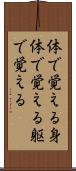 体で覚える身
体で覚える躯
で覚える